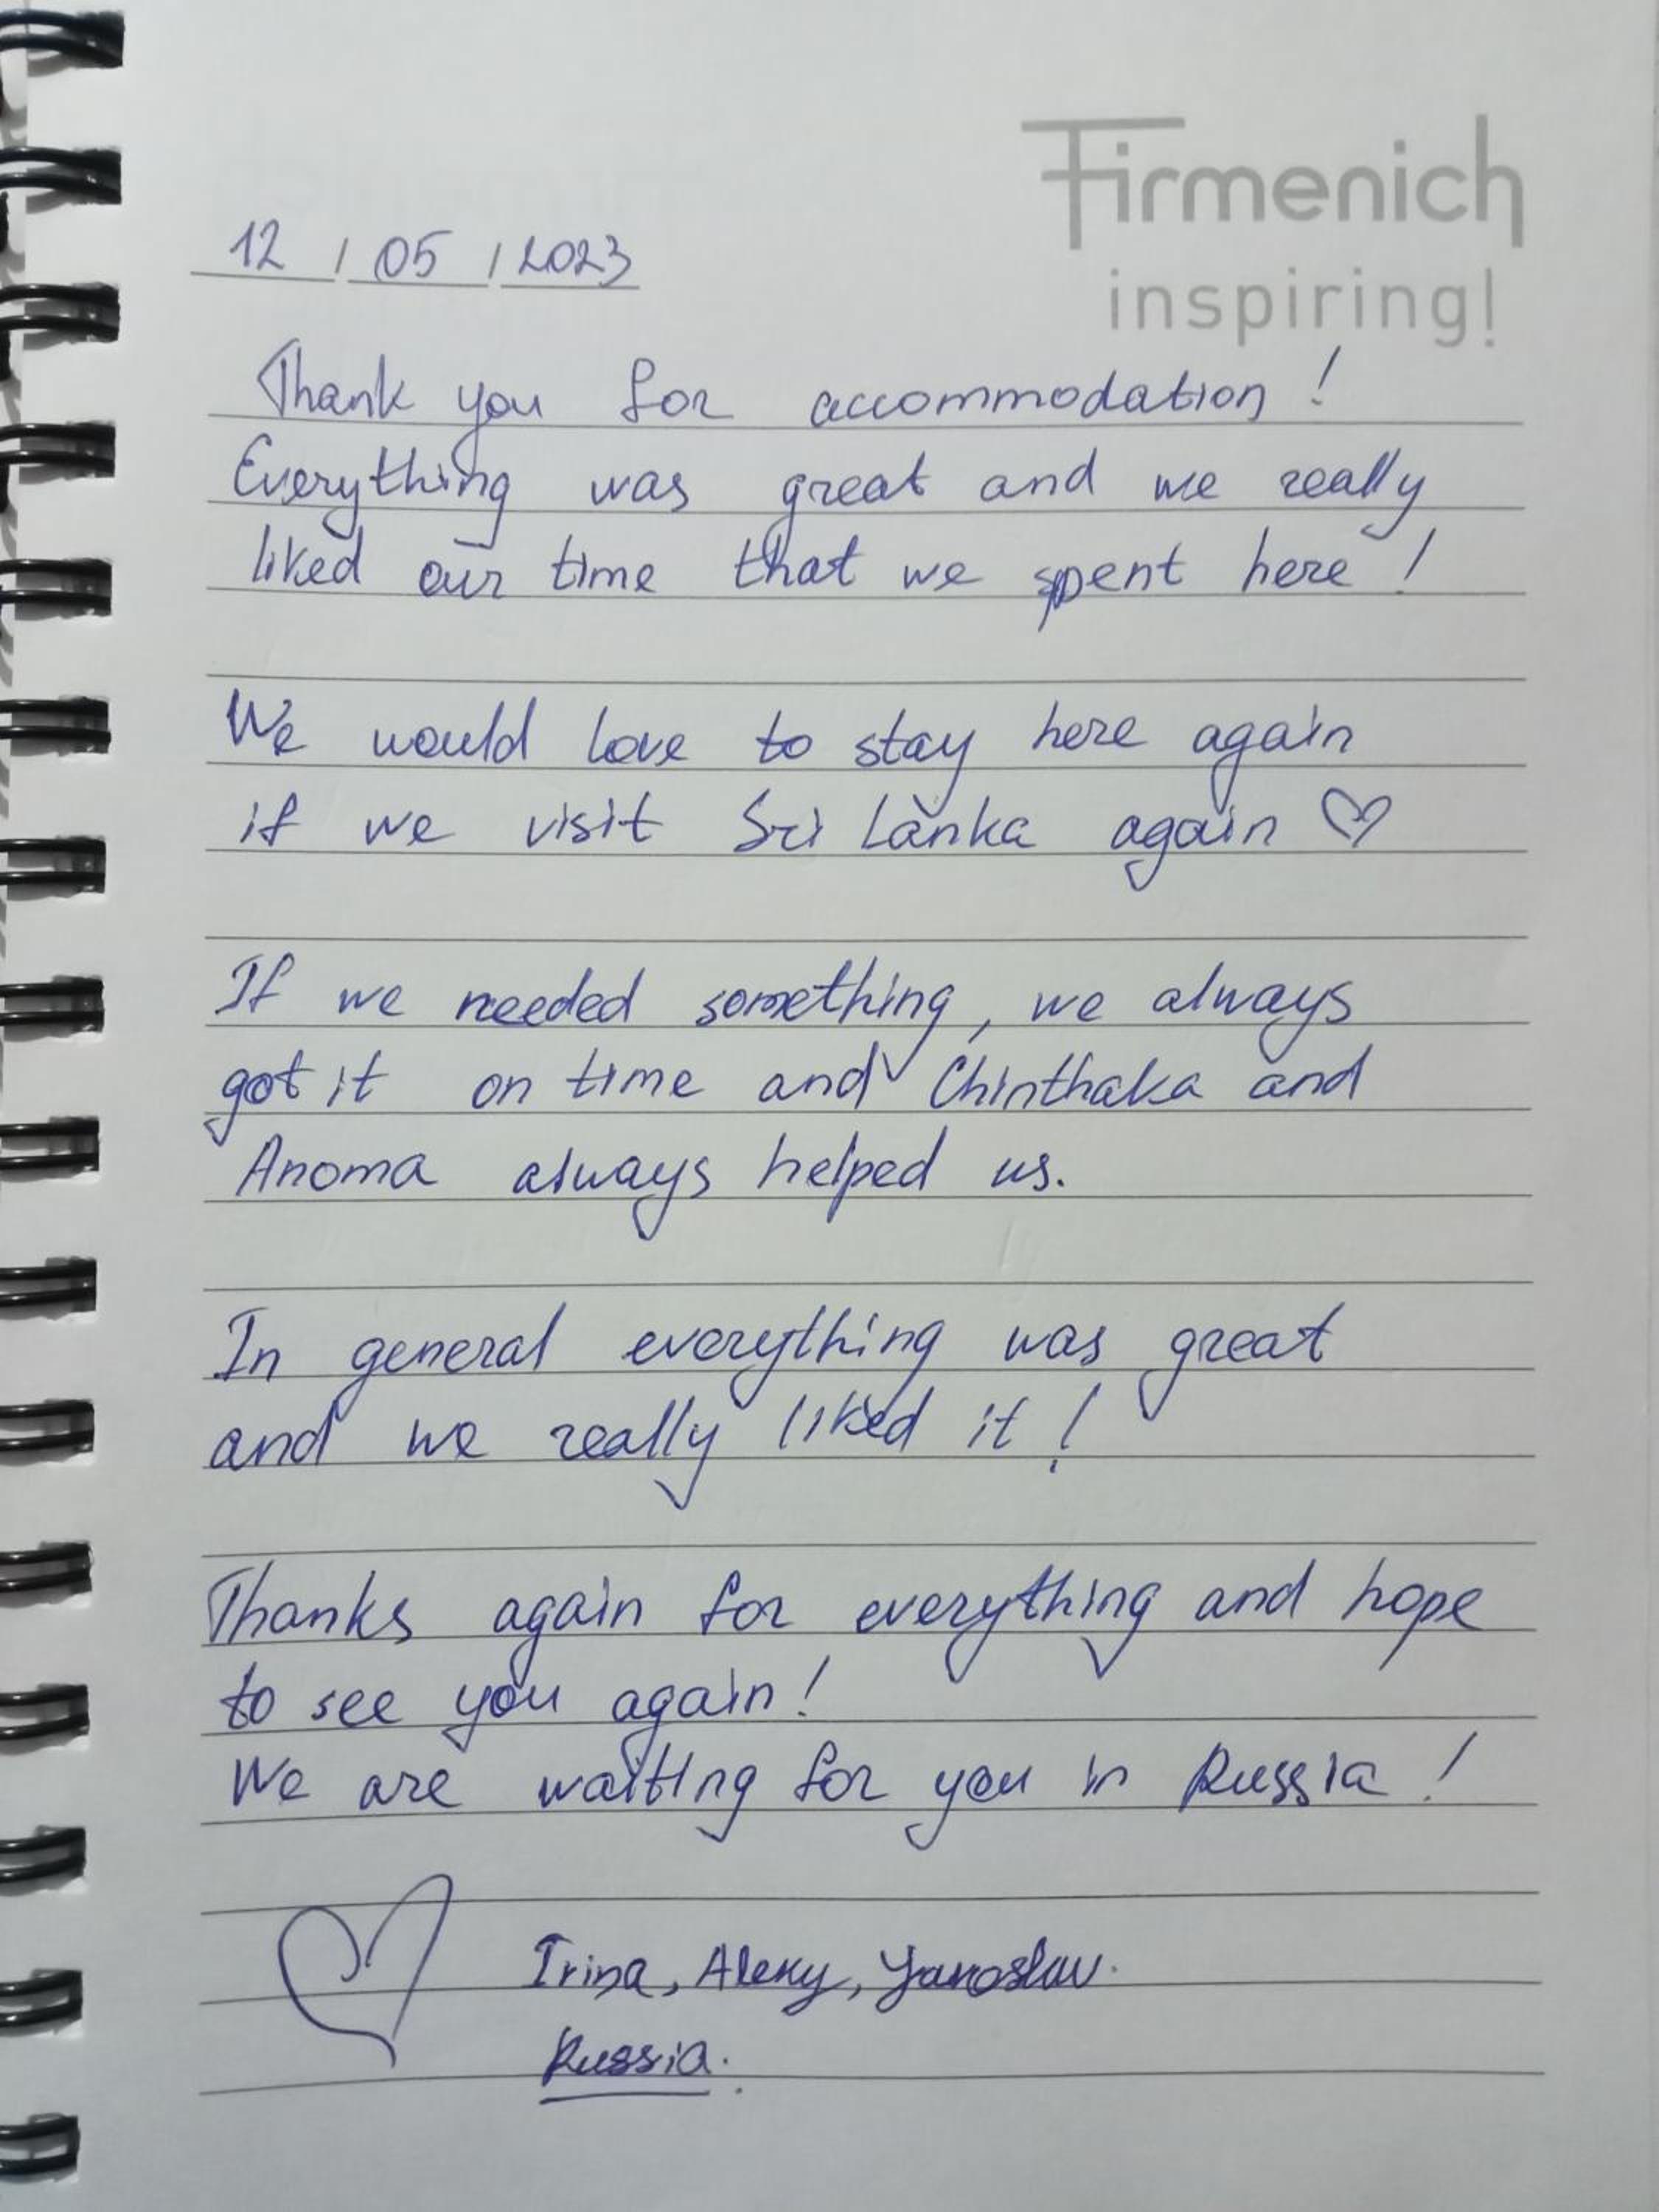 Firmenich
inspiring!
12 / 05 / 2023
Thank you for accommodation!
Everything was great and we really
liked our time that we spent here!
We would love to stay here again
if we visit Sri Lanka again ♡
If we needed something, we always
got it on time and Chinthaka and
Anoma always helped us.
In general everything was great
and we really liked it!
Thanks again for everything and hope
to see you again!
We are waiting for you in Russia!
Irina, Alexy, Yaroslav.
Russia.